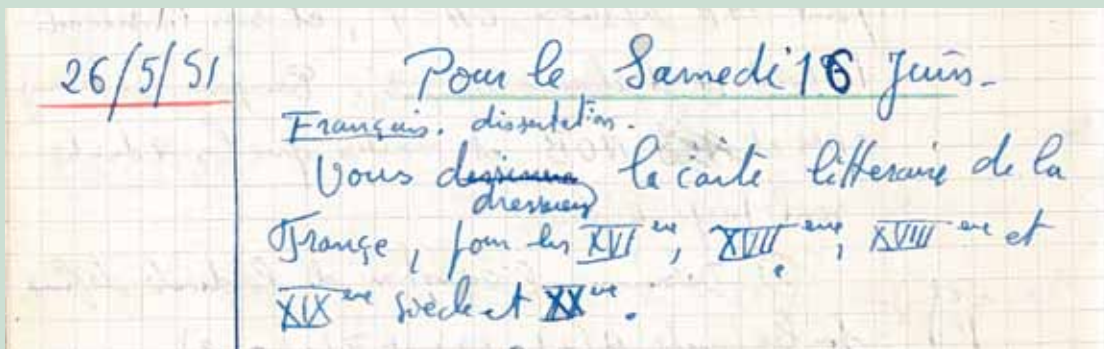 26/5/51
Pour le Samedi 16 Juin.
Français. dissertation.
Vous dresserez la carte litteraire de la
France, pour les XVI eme, XVII eme, XVIII eme et
XIX eme siècle et XX eme.